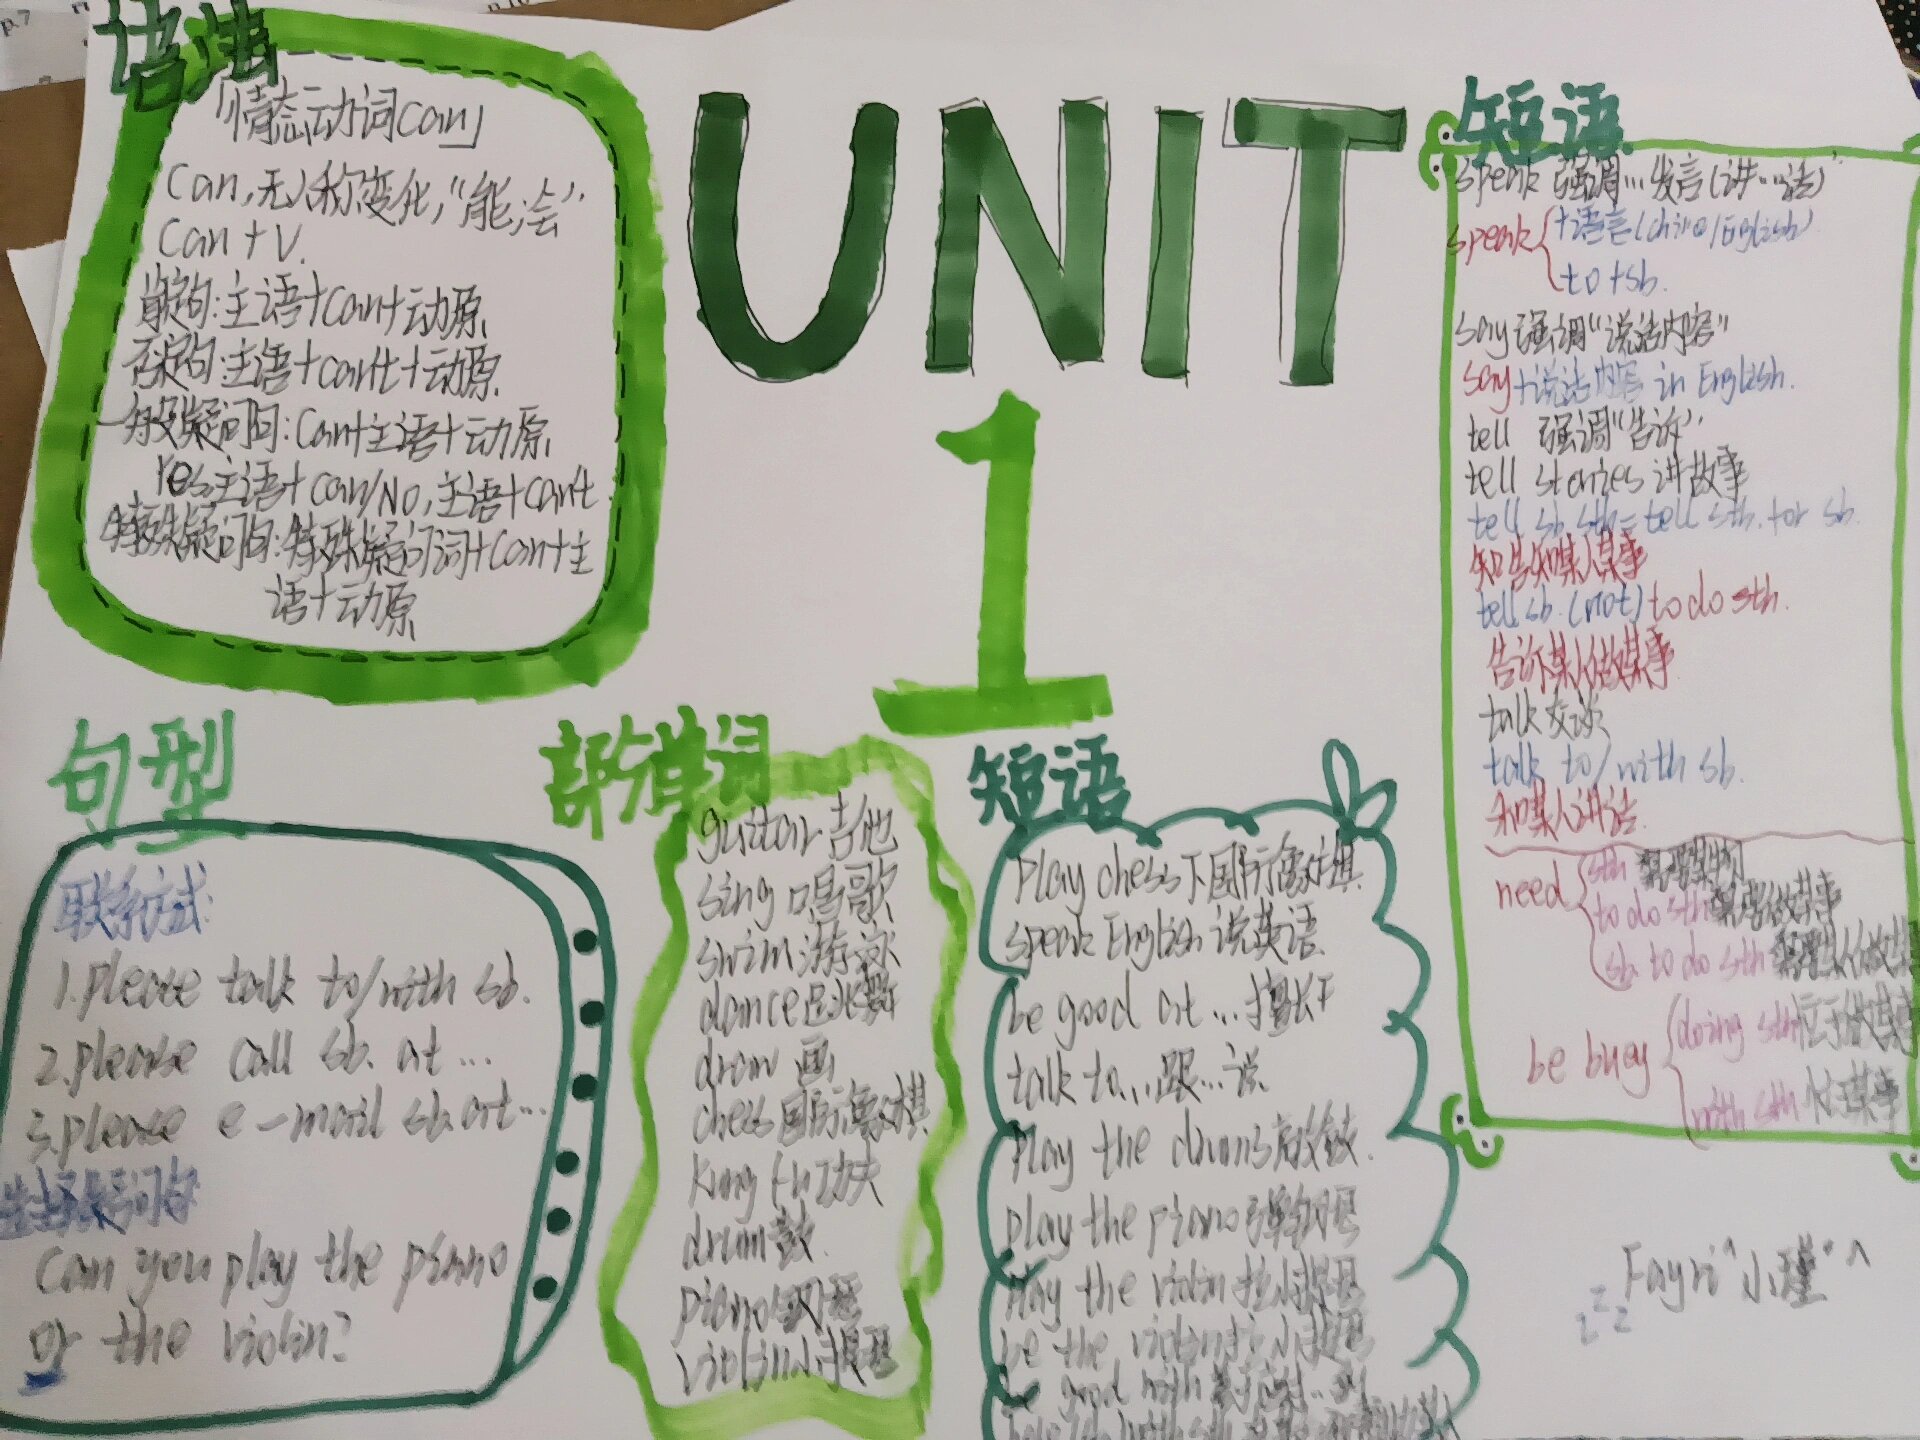 语法
「情态动词can」
can,无人称变化,"能,会"
can+V.
肯定句:主语+can+动原
否定句:主语+can't+动原
一般疑问句:Can+主语+动原
Yes,主语+can/No,主语+can't
特殊疑问句:特殊疑问词+can+主
语+动原
UNIT
1
短语
speak 强调…发言(讲…话)"
speak +语言(chine/English)
to+sb.
say 强调"说话内容"
say+说话内容 in English.
tell 强调"告诉"
tell stories 讲故事
tell sb.sth=tell sth. for sb.
告知某人某事
tell sb.(not) to do sth.
告诉某人做某事
talk 交谈
talk to/with sb.
和某人讲话
need sth 需要某物
to do sth 需要做某事
sb to do sth
be busy doing sth 忙于做某事
with sth 忙某事
句型
联系方式:
1.please talk to/with sb.
2.please call sb. at ...
3.please e-mail sb.at...
选择疑问句
Can you play the piano
or the violin?
部分单词
guitar 吉他
sing 唱歌
swim 游泳
dance 跳舞
draw 画
chess 国际象棋
kung fu 功夫
drum 鼓
piano 钢琴
violin 小提琴
短语
Play chess 下国际象棋
speak English 说英语
be good at ... 擅长于
talk to...跟…说
Play the drums 敲鼓
play the piano 弹钢琴
Play the violin 拉小提琴
be the violin 拉小提琴
be good with
Fayri "小瑾" ^
z z z